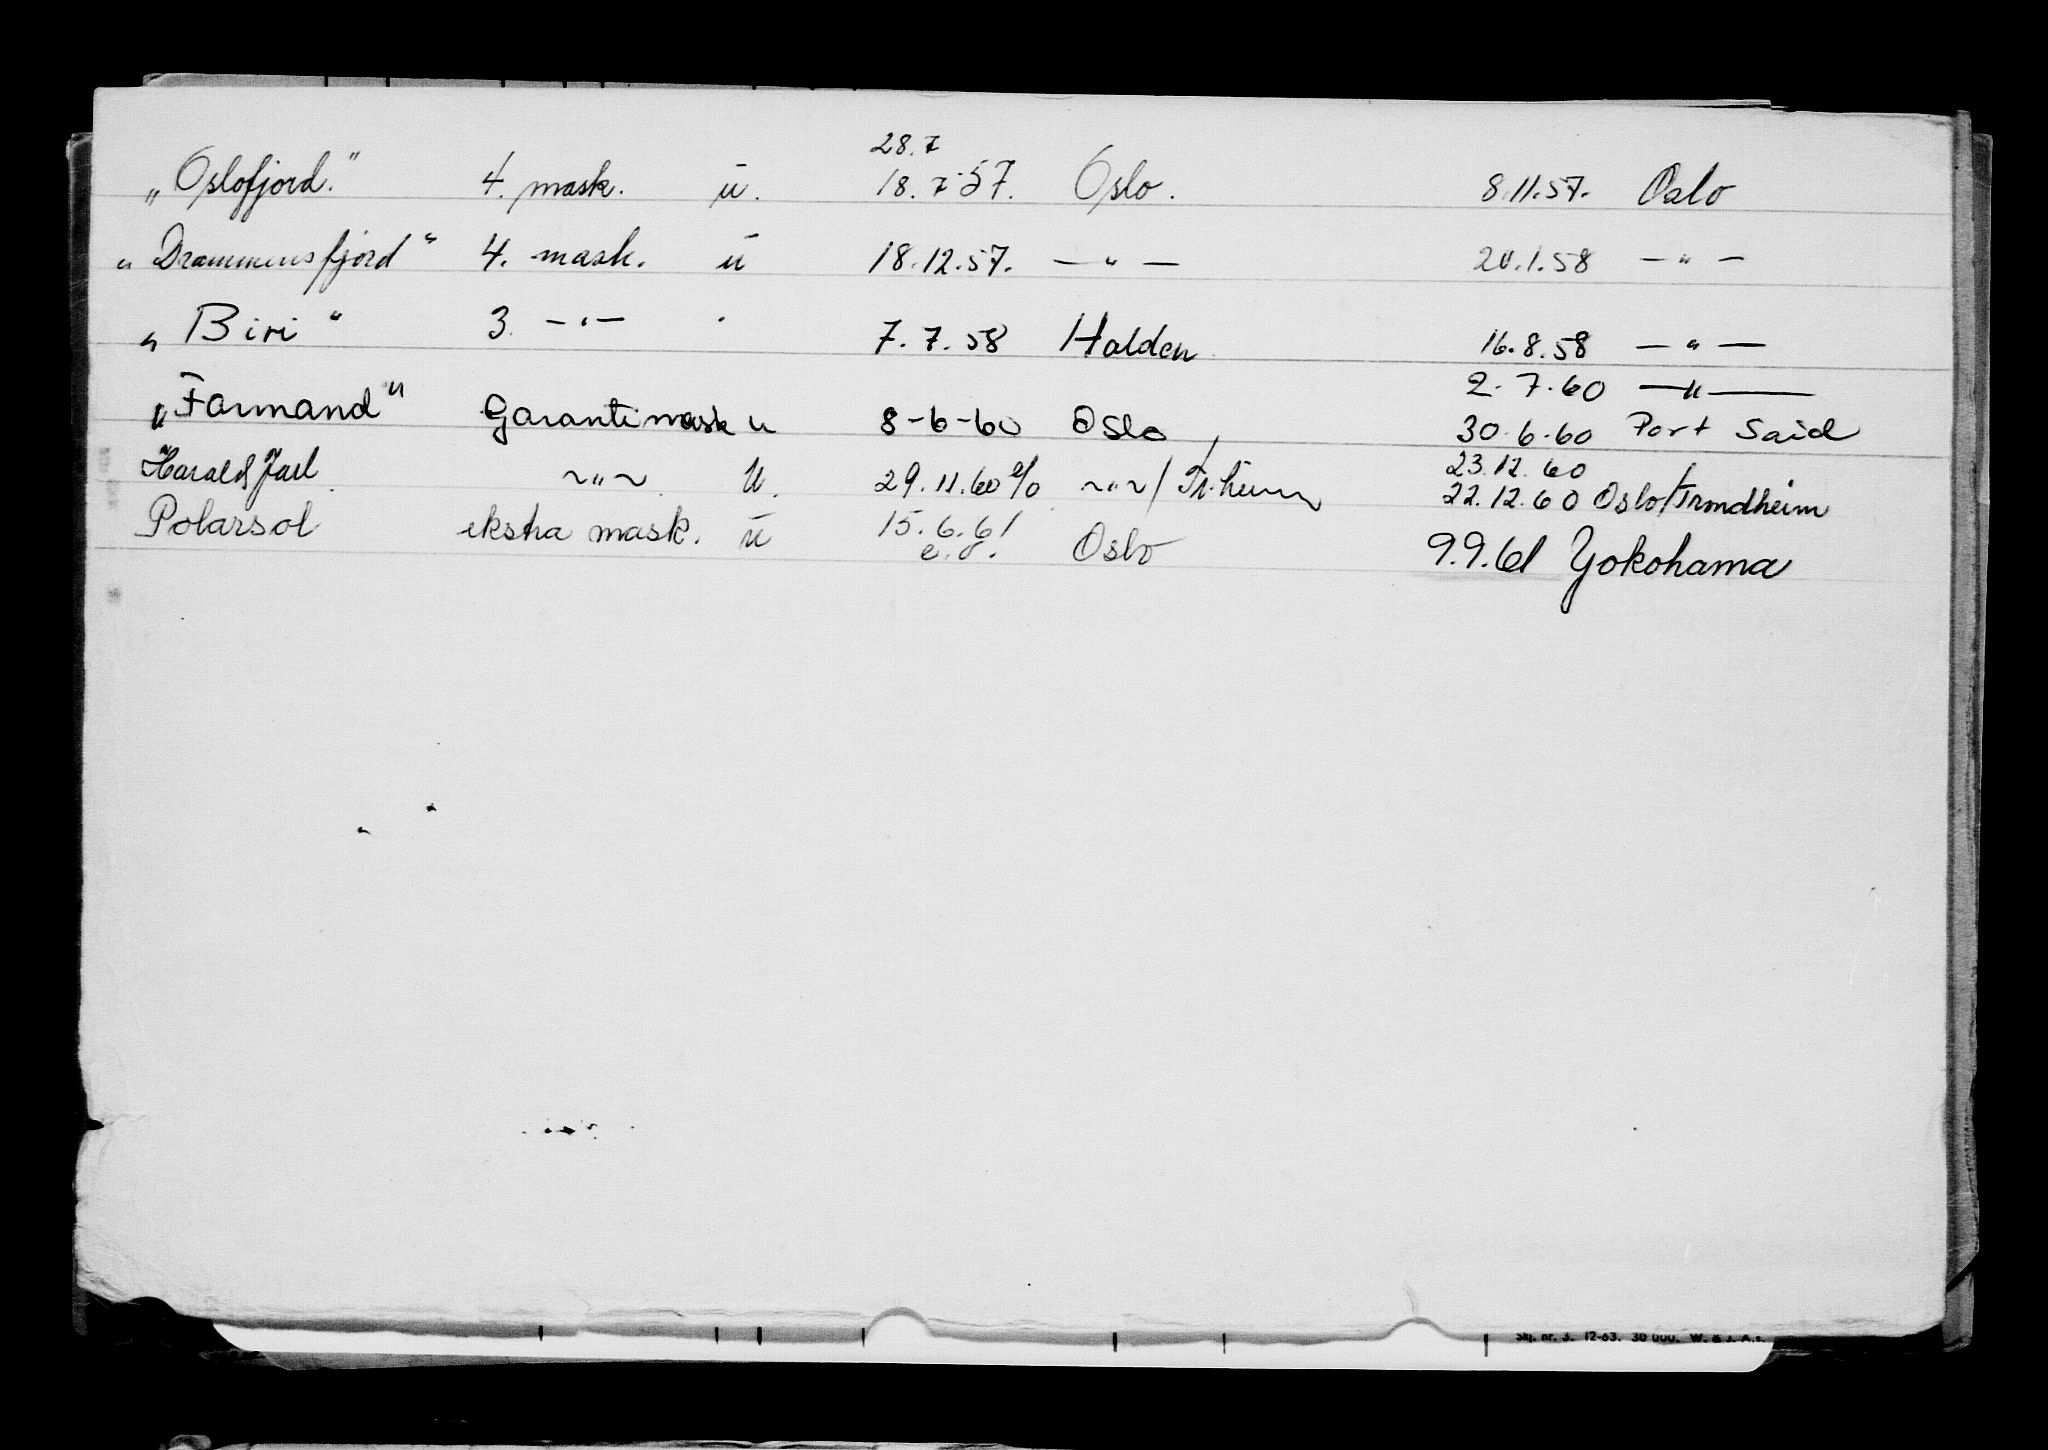 28.7
„Oslofjord." 4. mask. ū. 18.7.57. Oslo. 8.11.57. Oslo
„Drammensfjord" 4. mask. ū 18.12.57. —„— 20.1.58 —„—
„Biri" 3. —„— 7.7.58 Halden 16.8.58 —„—
2.7.60 —„—
„Farmand" Garantimask u 8-6-60 Oslo, 30.6.60 Port Said
23.12.60
Harald Jarl ~„~ U. 29.11.60 e/o ~„~/Tr.heim 22.12.60 Oslo/Trondheim
Polarsol ekstra mask. ū 15.6.61 Oslo 9.9.61 Yokohama
e.o.
Skj. nr. 3. 12-63. 30 000. W. & J. A.s.